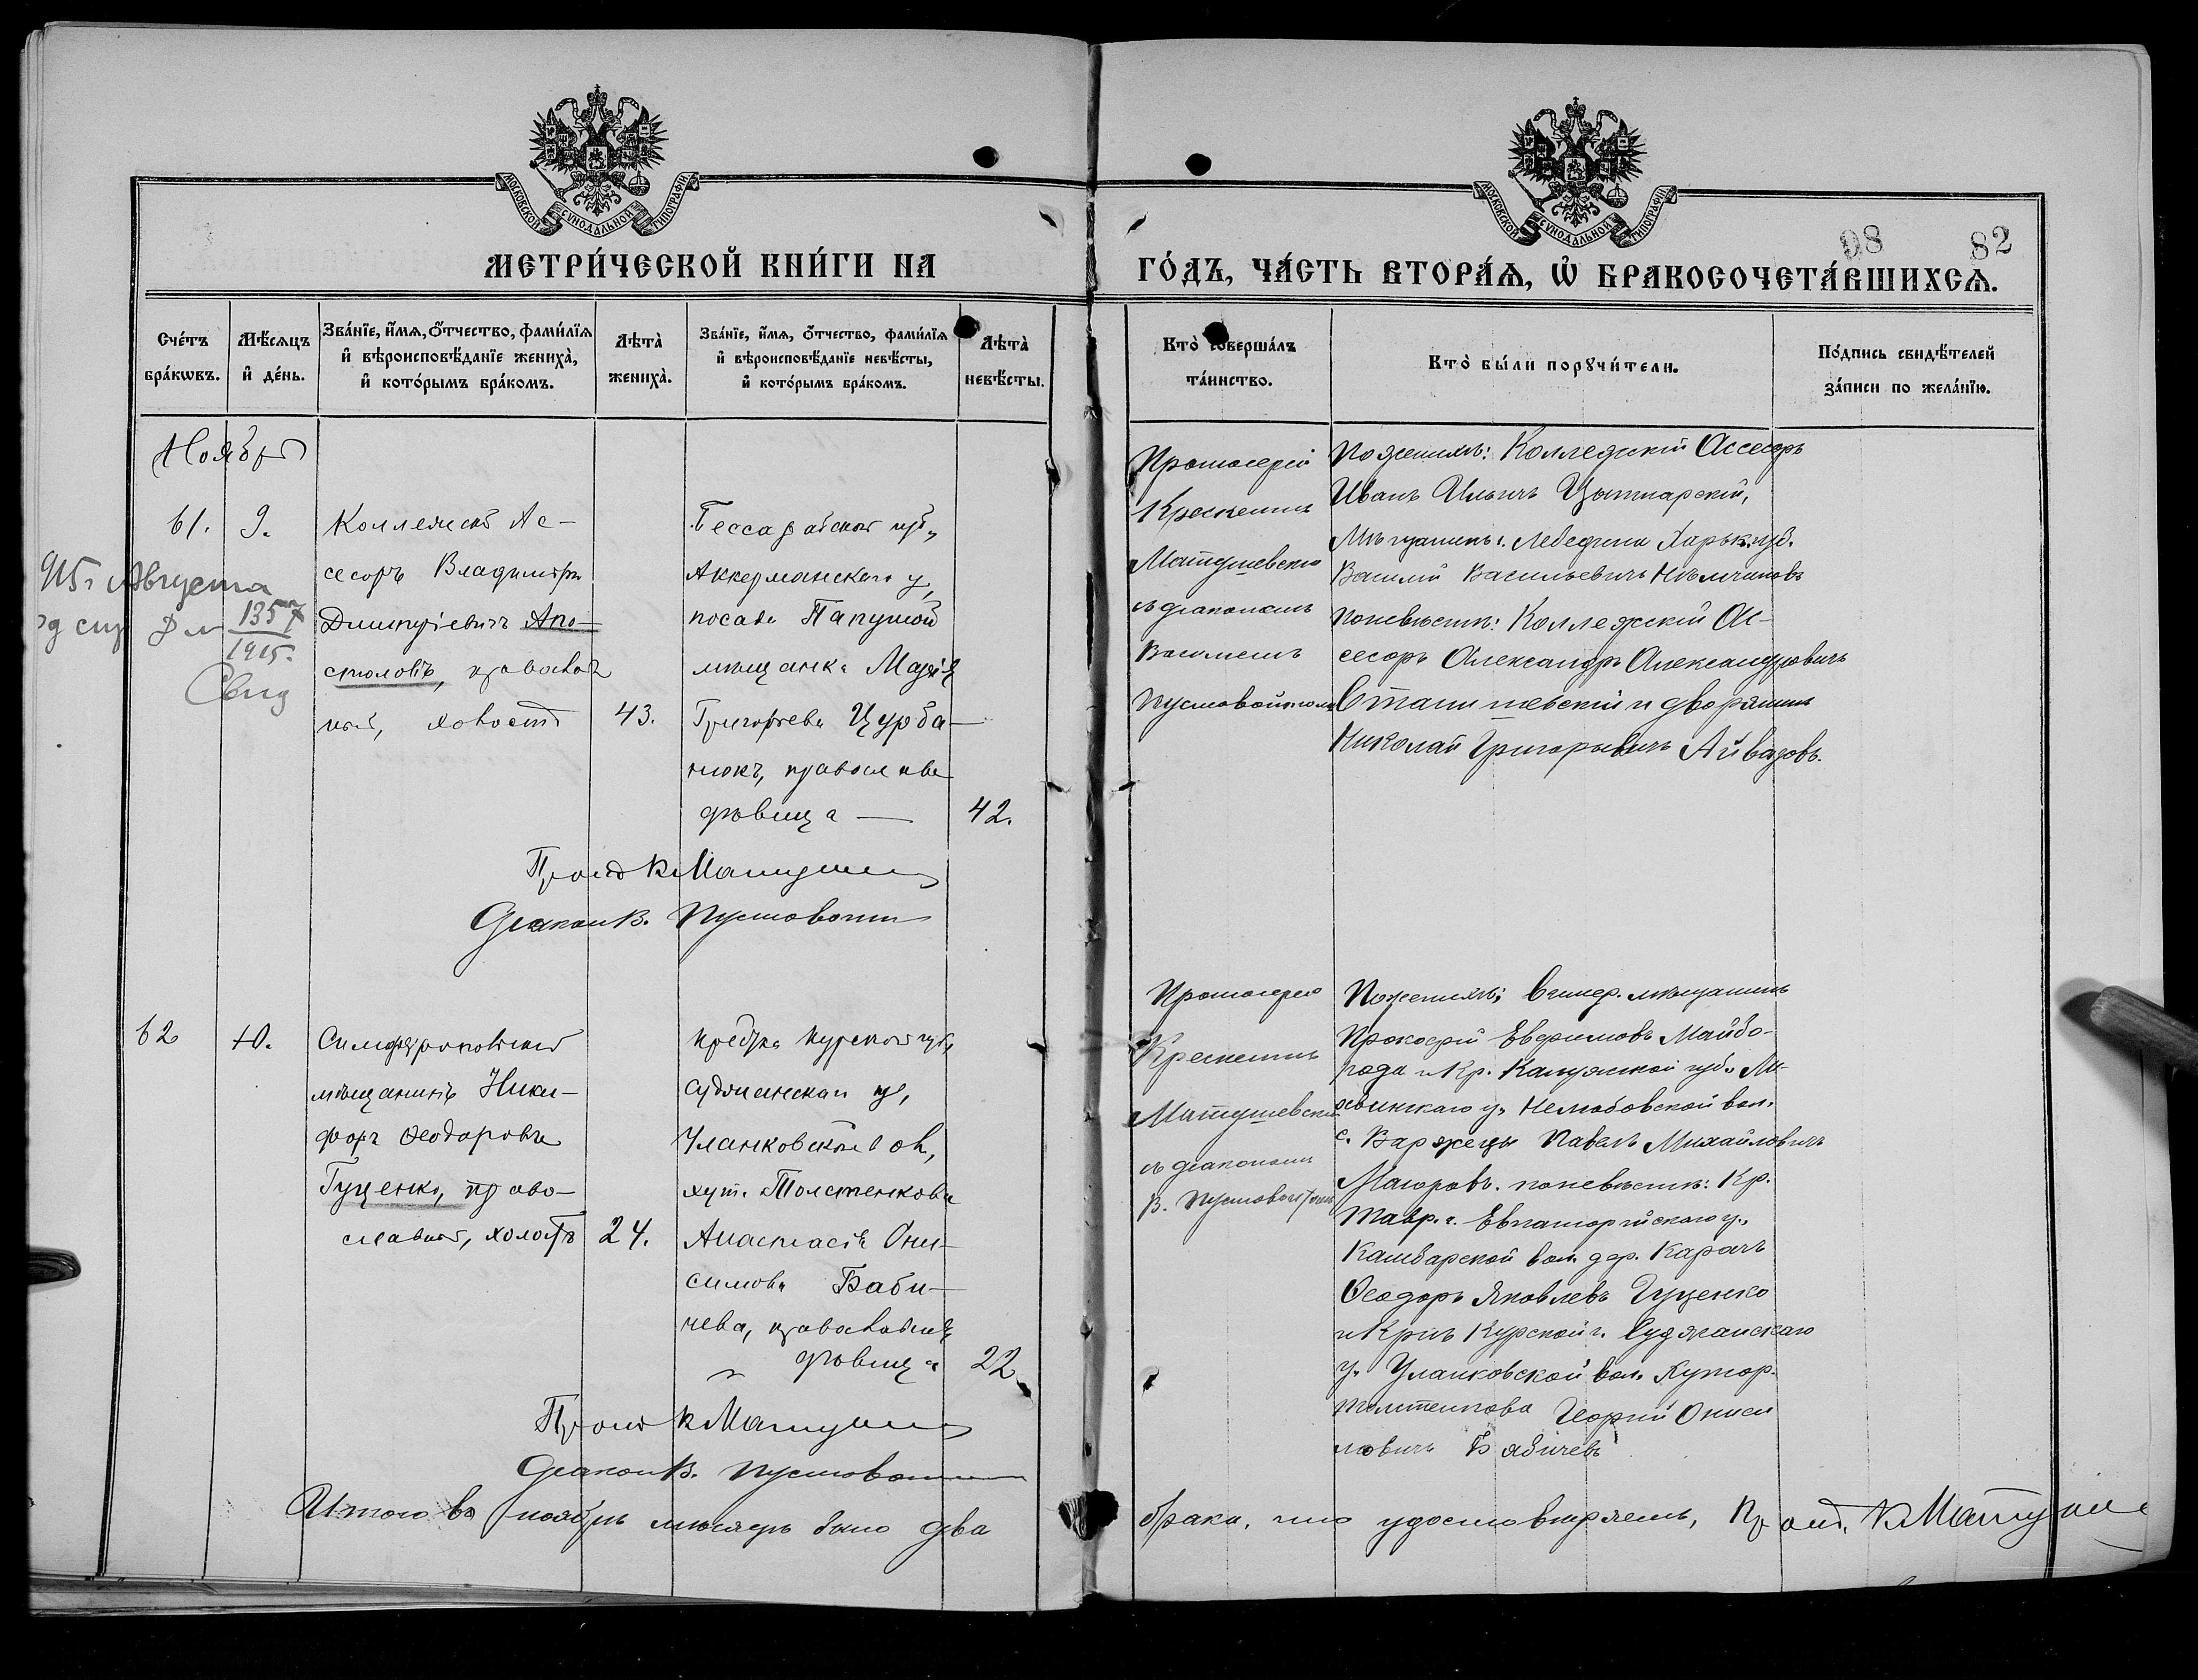 МОСКОВСКОЙ СѴНОДАЛЬНОЙ ТИПОГРАФІИ
МОСКОВСКОЙ СѴНОДАЛЬНОЙ ТИПОГРАФІИ
98 82
МЕТРИ́ЧЕСКОЙ КНИ́ГИ НА ГО́ДЪ, ЧА́СТЬ ВТОРА́Ѧ, Ѡ҆ БРАКОСОЧЕТА́ВШИХСѦ.
Сче́тъ
бра́кѡвъ.
Мѣ́сѧцъ
и҆ де́нь.
Зва́нїе, и҆́мѧ, ѻ҆́тчество, фами́лїѧ
и҆ вѣроисповѣ́данїе жениха̀,
и҆ кото́рымъ бра́комъ.
Лѣта̀
жениха̀.
Зва́нїе, и҆́мѧ, ѻ҆́тчество, фами́лїѧ
и҆ вѣроисповѣ́данїе невѣ́сты,
и҆ кото́рымъ бра́комъ.
Лѣта̀
невѣ́сты.
Кто̀ соверша́лъ
та́инство.
Кто̀ бы́ли порꙋчи́тели.
По́дпись свидѣ́телей
за́писи по жела́нїю.
Ноябрь
61.
9.
Августа
1357
1915.
Свид
Коллежскій Ас-
сесоръ Владиміръ
Димитріевичъ Апо-
столовъ, православ
ный,
43.
Бессарабской губ.,
Аккерманскаго у,
посада Папушой
мѣщанка Марія
Григорьева Цурба-
нюкъ, православ
дѣвица —
42.
Протоіерей
Крескентъ
Матушевскій
съ діакономъ
Василіемъ
Пустовойтомъ
По женихѣ: Коллежскій Ассесоръ
Иванъ Ильичъ Цытарскій,
Мѣщанинъ г. Лебедина Харьк. губ.
Василій Васильевичъ Нѣмчиновъ
По невѣстѣ: Коллежскій Ас-
сесоръ Александръ Александровичъ
Станишевскій и дворянинъ
Николай Григорьевичъ Айвазовъ.
Прот К Матуше
Діакон В. Пустовойтъ
62
10.
Симферопольскій
мѣщанинъ Ники-
форъ Ѳеодоровъ
Гуценко, право-
славный, холостъ
24.
Курской губ,
Суджанскаго у,
Уланковской вол,
хут. Толстенкова
Анастасія Они-
симова Баби-
чева, православная,
дѣвица
22
Протоіерей
Крескентъ
Матушевскій
съ діакономъ
В. Пустовойтомъ
По женихѣ; Симф. мѣщанинъ
Прокофій Евфимовъ Майбо-
рода и Кр. Калужской губ. Ли-
хвинскаго у.
с. Варжецы Павелъ Михайловичъ
Маіоровъ. по невѣстѣ: Кр.
Тавр. г. Евпаторійскаго у.,
Камбарской вол. дер. Карачъ
Ѳеодоръ Яковлевъ Гуценко
и Кр-нъ Курской г. Суджанскаго
у. Уланковской вол. Хутор.
Толстенкова Георгій Ониси
мовичъ Бабичевъ
Прот К Матуше
Діакон В. Пустовойтъ
Итого въ ноябрѣ мѣсяцѣ было два брака, что удостовѣряемъ, Прот. К Матуше